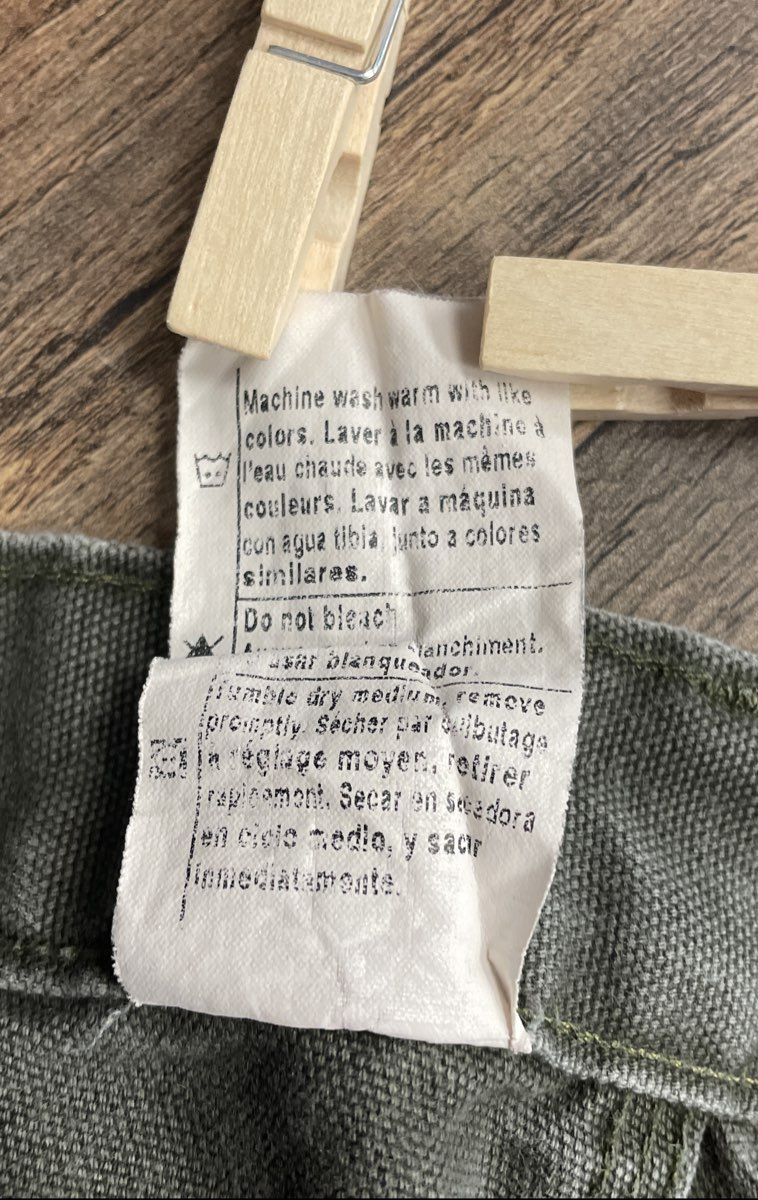 Machine wash warm with like
colors. Laver à la machine à
l'eau chaude avec les mêmes
couleurs. Lavar a máquina
con agua tibia, junto a colores
similares.
Do not bleach
blanchiment.
usar blanqueador.
Tumble dry medium, remove
promptly. Sécher par culbutage
à réglage moyen, retirer
rapidement. Secar en secadora
en ciclo medio, y sacar
inmediatamente.